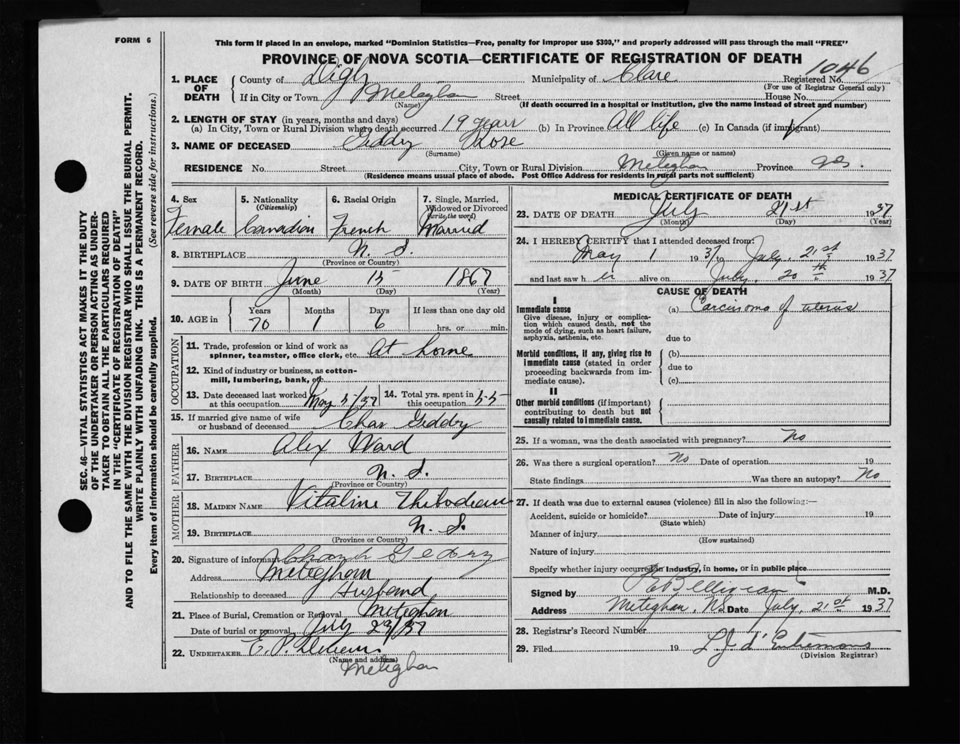 FORM 6
This form if placed in an envelope, marked "Dominion Statistics—Free, penalty for improper use $300," and properly addressed will pass through the mail "FREE"
PROVINCE OF NOVA SCOTIA—CERTIFICATE OF REGISTRATION OF DEATH
1046
1. PLACE OF DEATH County of Digby Municipality of Clare Registered No.
(For use of Registrar General only)
If in City or Town Meteghan Street House No.
(Name) (If death occurred in a hospital or institution, give the name instead of street and number)
2. LENGTH OF STAY (in years, months and days)
(a) In City, Town or Rural Division where death occurred 19 years (b) In Province All life (c) In Canada (if immigrant)
3. NAME OF DECEASED Geddry Rose
(Surname) (Given name or names)
RESIDENCE No. Street City, Town or Rural Division Meteghan Province
(Residence means usual place of abode. Post Office Address for residents in rural parts not sufficient)
4. Sex Female
5. Nationality (Citizenship) Canadian
6. Racial Origin French
7. Single, Married, Widowed or Divorced (write the word) Married
8. BIRTHPLACE N. S.
(Province or Country)
9. DATE OF BIRTH June 15 1867
(Month) (Day) (Year)
10. AGE in Years Months Days If less than one day old
70 1 6 hrs. or min.
OCCUPATION
11. Trade, profession or kind of work as spinner, teamster, office clerk, etc. At home
12. Kind of industry or business, as cotton-mill, lumbering, bank, etc.
13. Date deceased last worked at this occupation May 5/37 14. Total yrs. spent in this occupation 55
15. If married give name of wife or husband of deceased Chas Geddry
FATHER
16. NAME Alex Ward
17. BIRTHPLACE N. S.
(Province or Country)
MOTHER
18. MAIDEN NAME Vitaline Thibodeau
19. BIRTHPLACE N. S.
(Province or Country)
20. Signature of informant Geddry
Address Meteghan
Relationship to deceased Husband
21. Place of Burial, Cremation or Removal Meteghan
Date of burial or removal July 23/37
22. UNDERTAKER E. P.
(Name and address)
Meteghan
MEDICAL CERTIFICATE OF DEATH
23. DATE OF DEATH July 21st 1937
(Month) (Day) (Year)
24. I HEREBY CERTIFY that I attended deceased from
May 1 1937 to July, 21st 1937
and last saw her alive on July, 20th 1937
CAUSE OF DEATH
I
Immediate cause (a) Carcinoma of uterus
Give disease, injury or complication which caused death, not the mode of dying, such as heart failure, asphyxia, asthenia, etc.
due to
Morbid conditions, if any, giving rise to immediate cause (stated in order proceeding backwards from immediate cause).
(b)
due to
(c)
II
Other morbid conditions (if important) contributing to death but not causally related to immediate cause.
25. If a woman, was the death associated with pregnancy? No
26. Was there a surgical operation? No Date of operation 19
State findings Was there an autopsy? No
27. If death was due to external causes (violence) fill in also the following:—
Accident, suicide or homicide? Date of injury 19
(State which)
Manner of injury
(How sustained)
Nature of injury
Specify whether injury occurred in industry, in home, or in public place
Signed by Belliveau M.D.
Address Meteghan, N.S. Date July, 21st 1937
28. Registrar's Record Number
29. Filed 19 L. J. d'Entremont
(Division Registrar)
SEC. 46—VITAL STATISTICS ACT MAKES IT THE DUTY
OF THE UNDERTAKER OR PERSON ACTING AS UNDER-
TAKER TO OBTAIN ALL THE PARTICULARS REQUIRED
IN THE "CERTIFICATE OF REGISTRATION OF DEATH"
AND TO FILE THE SAME WITH THE DIVISION REGISTRAR WHO SHALL ISSUE THE BURIAL PERMIT.
WRITE PLAINLY WITH UNFADING INK. THIS IS A PERMANENT RECORD.
Every item of information should be carefully supplied. (See reverse side for instructions.)